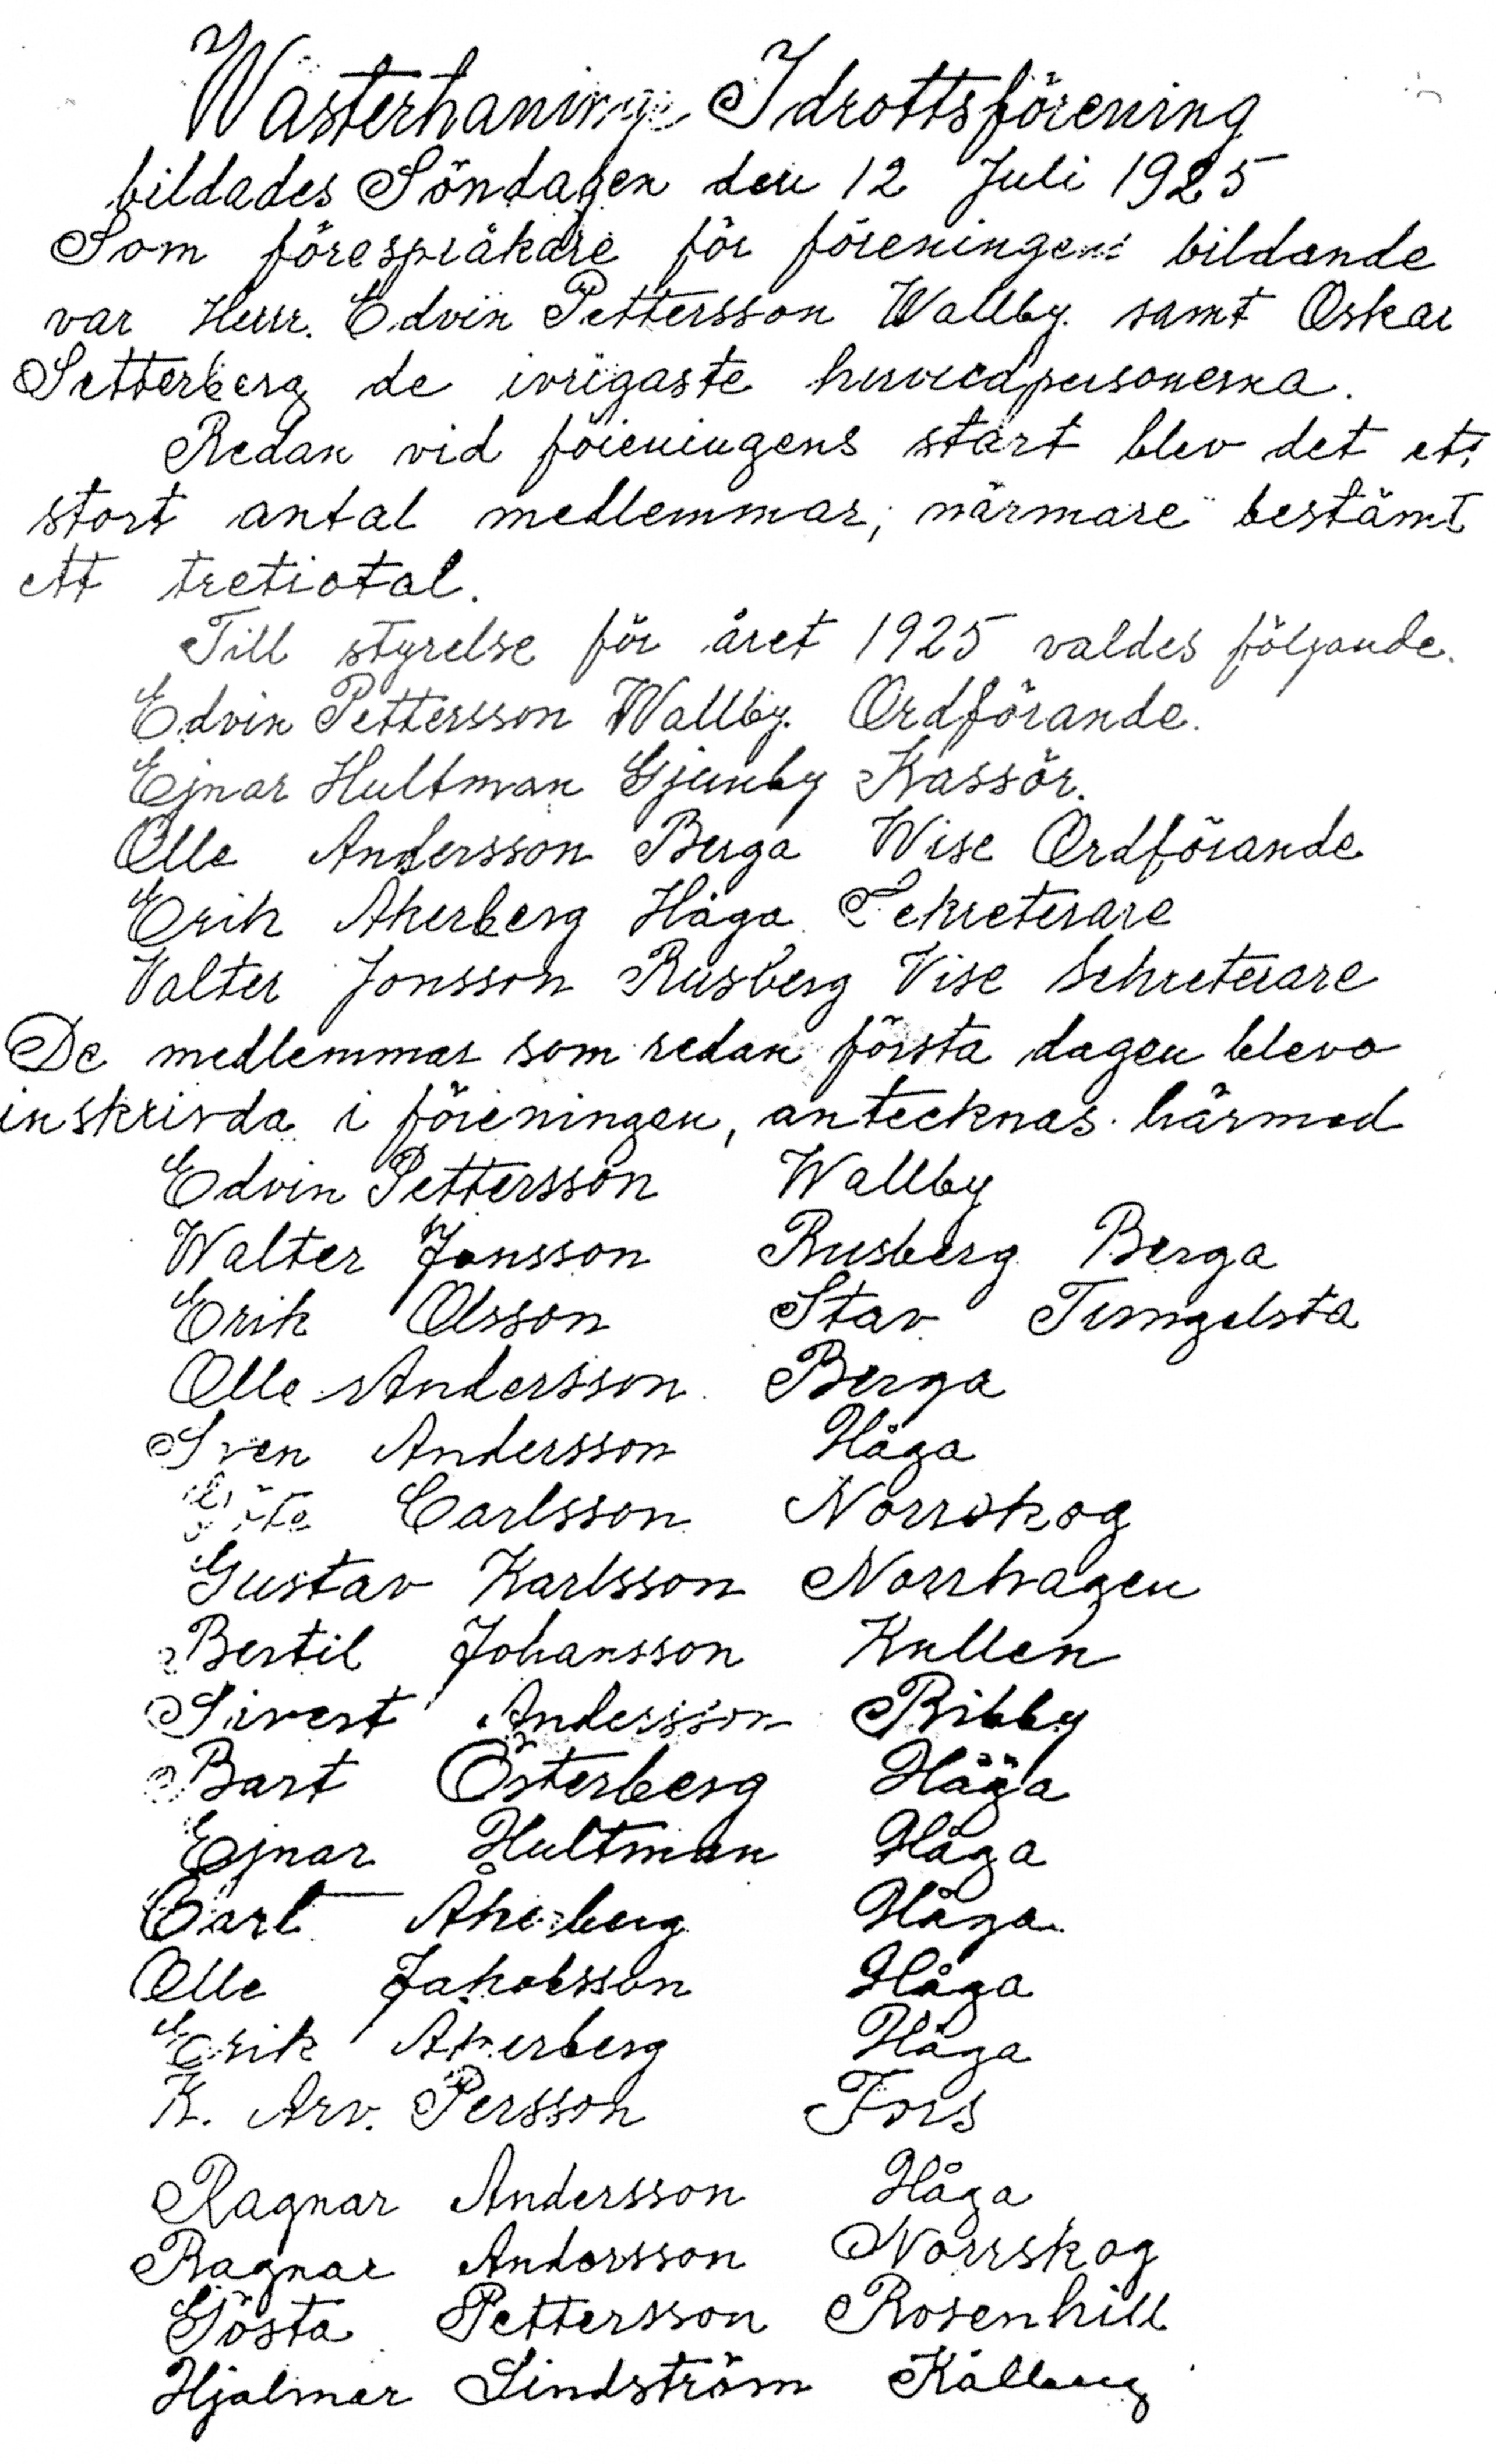 Wasterhaninge Idrottsförening
bildades Söndagen den 12 Juli 1925
Som förespråkare för föreningens bildande
var Herr. Edvin Pettersson Wallby. samt Oskar
Setterberg de ivrigaste huvudpersonerna.
Redan vid föreningens start blev det ett
stort antal medlemmar, närmare bestämt
ett tretiotal.
Till styrelse för året 1925 valdes följande.
Edvin Pettersson Wallby. Ordförande.
Ejnar Hultman Gjunby Kassör.
Olle Andersson Berga Wise Ordförande
Erik Åkerberg Håga Sekreterare
Valter Jonsson Rusberg Vise Sekreterare
De medlemmar som redan första dagen blevo
inskrivda i föreningen, antecknas härmed
Edvin Pettersson Wallby
Walter Jonsson Rusberg Berga
Erik Olsson Stav Tungelsta
Olle Andersson Berga
Sven Andersson Håga
Carlsson Norrskog
Gustav Karlsson Norrhagen
Bertil Johansson Kullen
Sivert Andersson Ribby
Bart Österberg Håga
Ejnar Hultman Håga
Carl Åkerberg Håga
Olle Jakobsson Håga
Erik Åkerberg Håga
K. Arv. Persson Fors
Ragnar Andersson Håga
Ragnar Andersson Norrskog
Gösta Pettersson Rosenhill
Hjalmar Lindström Kålberg